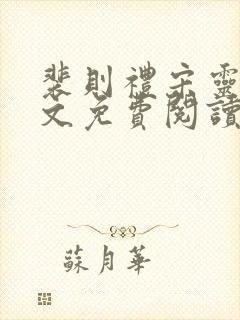 裴則禮宋靈
文免費閱讀
蘇月華